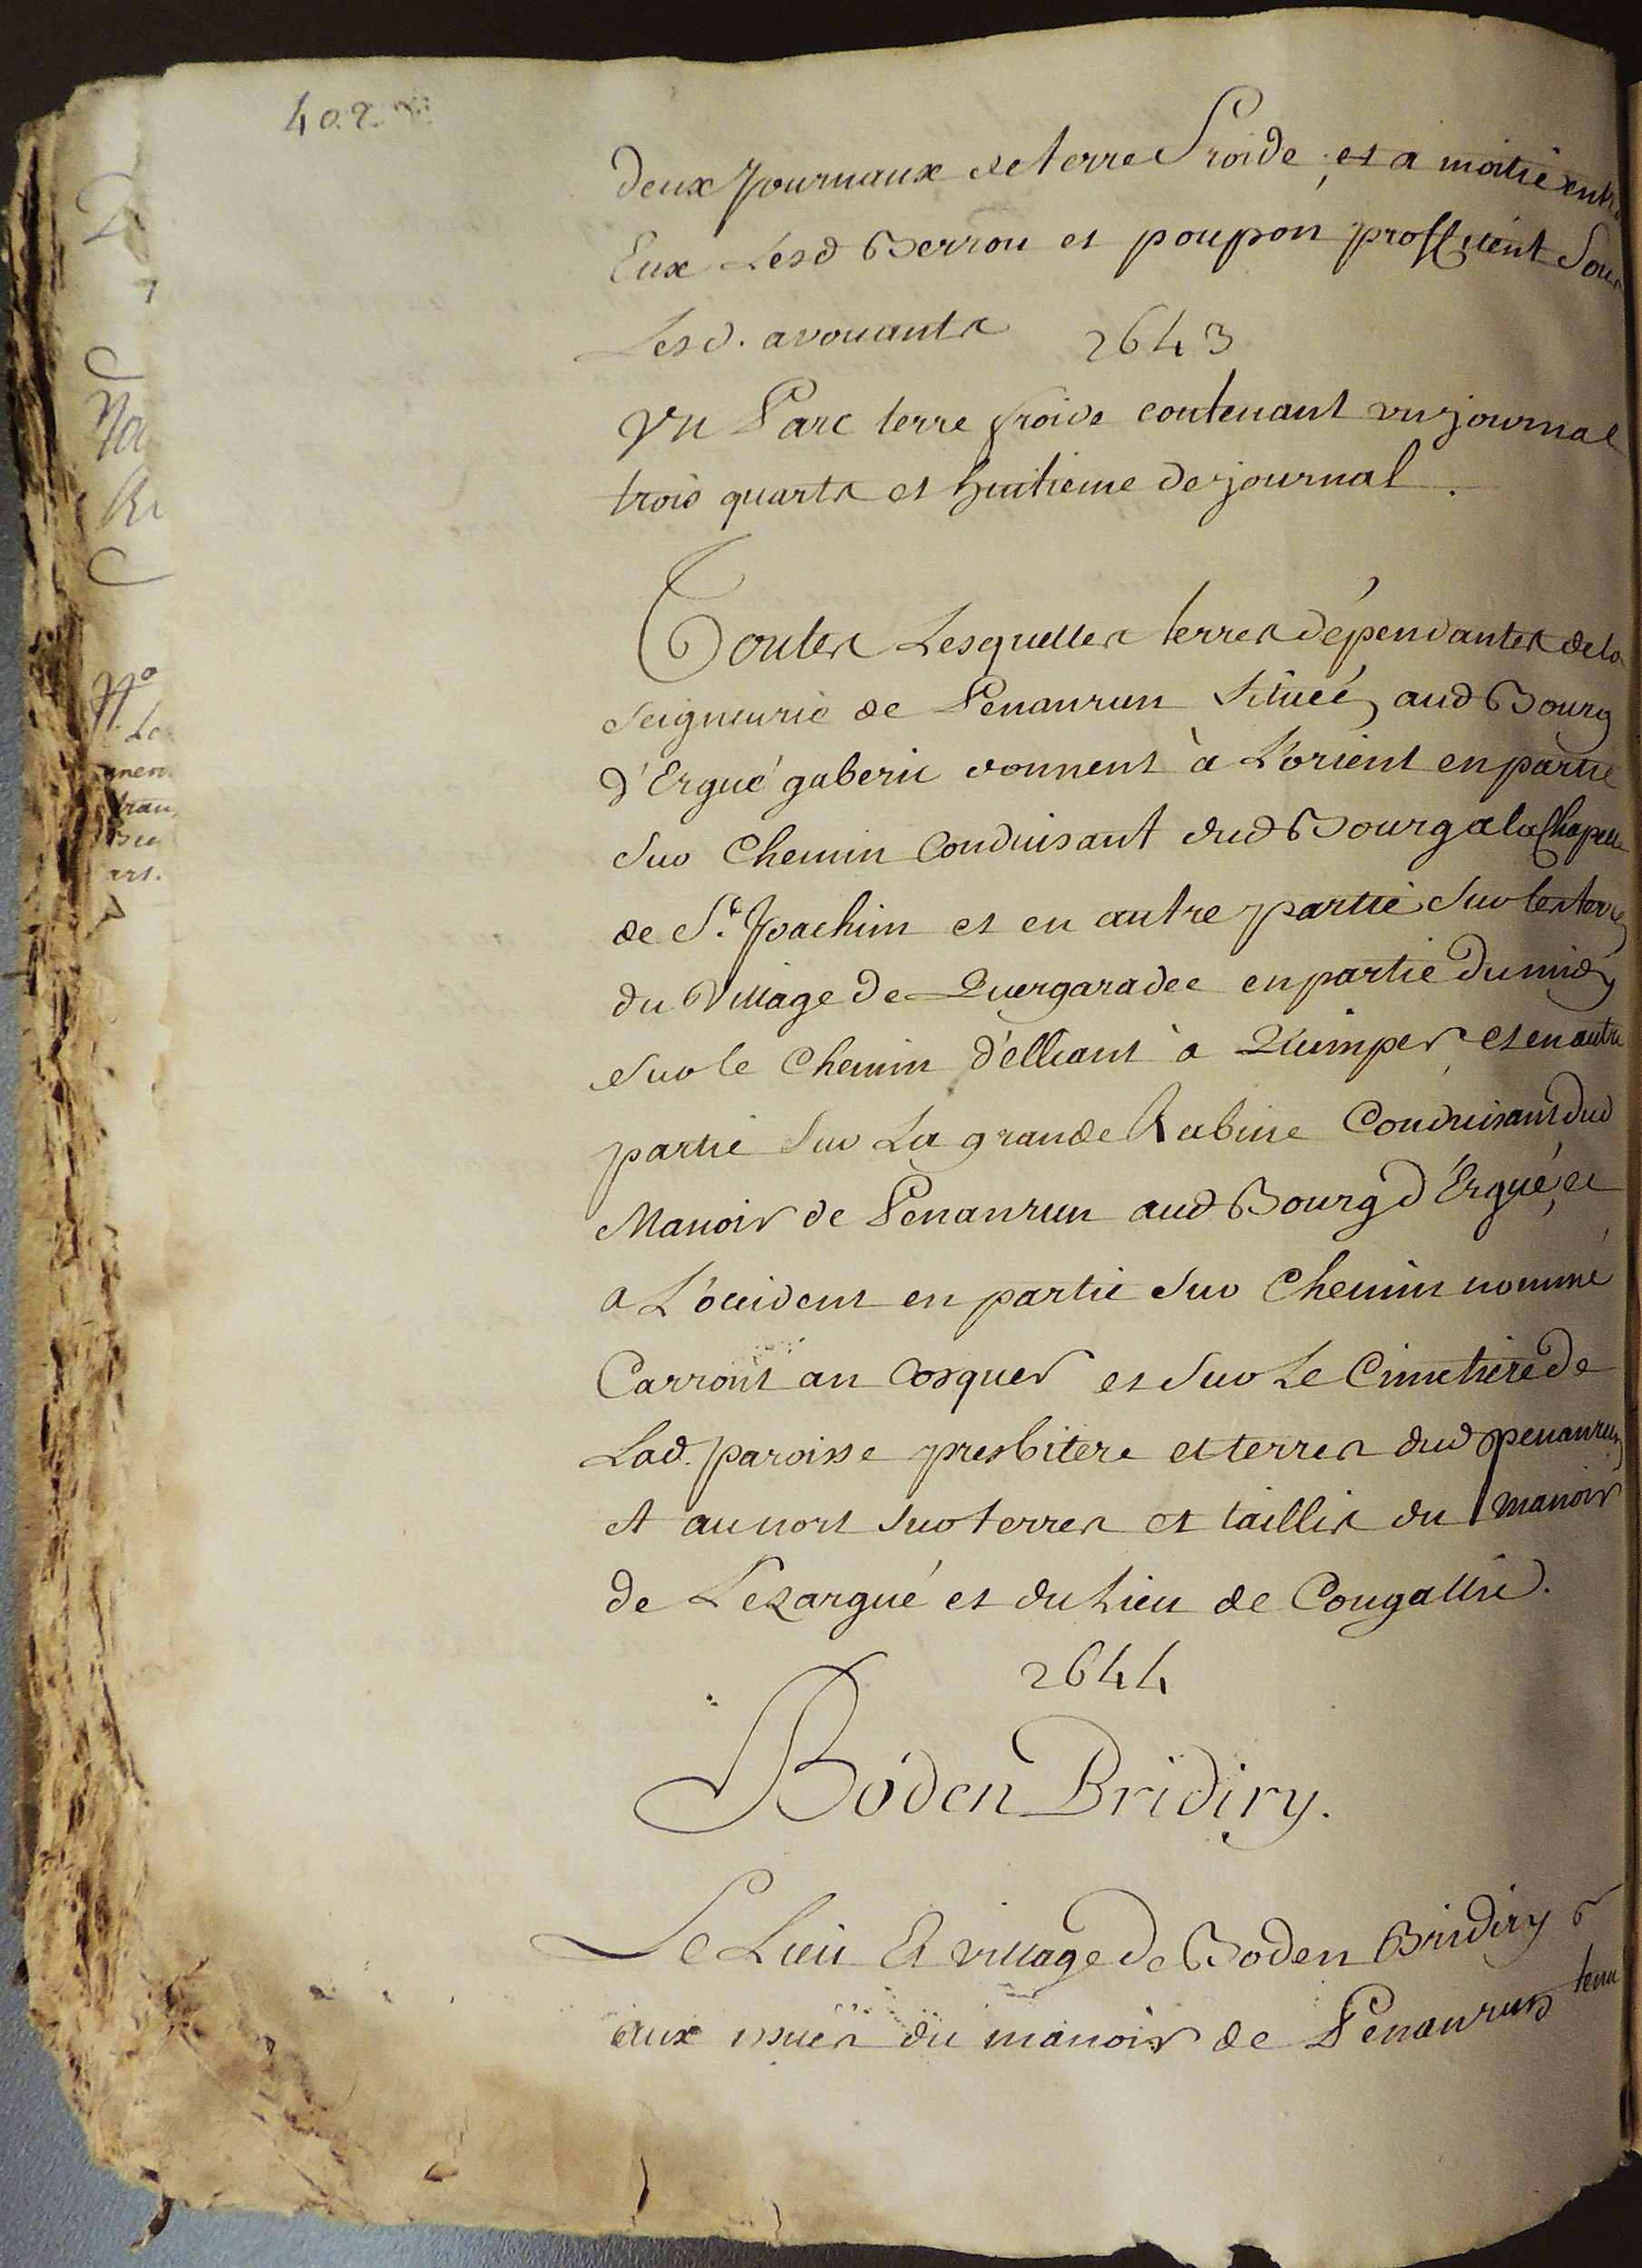 402
deux journaux de terre froide, et a moitié entre
Eux Lesd Berrou et poupon proffitent Sous
Lesd. avouants 2643
Un Parc terre froide contenant un journal
trois quarts et huitieme de journal.
Toutes Lesquelles terres dépendantes de la
Seigneurie de Penanrun Situeé aud Bourg
d'Ergué gaberic donnent à L'orient en partie
Sur Chemin Conduisant dud Bourg a la Chapelle
de St. Joachim et en autre partie Sur les terres
du Village de Quergaradec en partie du midy
Sur le Chemin d'elliant à Quimper et en autre
partie Sur La grande Rabine Conduisant dud
Manoir de Penanrun aud Bourg d'Ergué, et
a L'occident en partie Sur Chemin nommé
Carront an Cosquer et Sur Le Cimetiere de
Lad. paroisse presbitere et terres dud penanrun
et au nort Sur terres et taillis du manoir
de Lezargué et du Lieu de Congallic.
2644
Boden Bridiry.
Le Lieu Et village de Boden Bridiry
aux issues du manoir de Penanrun tenu
No